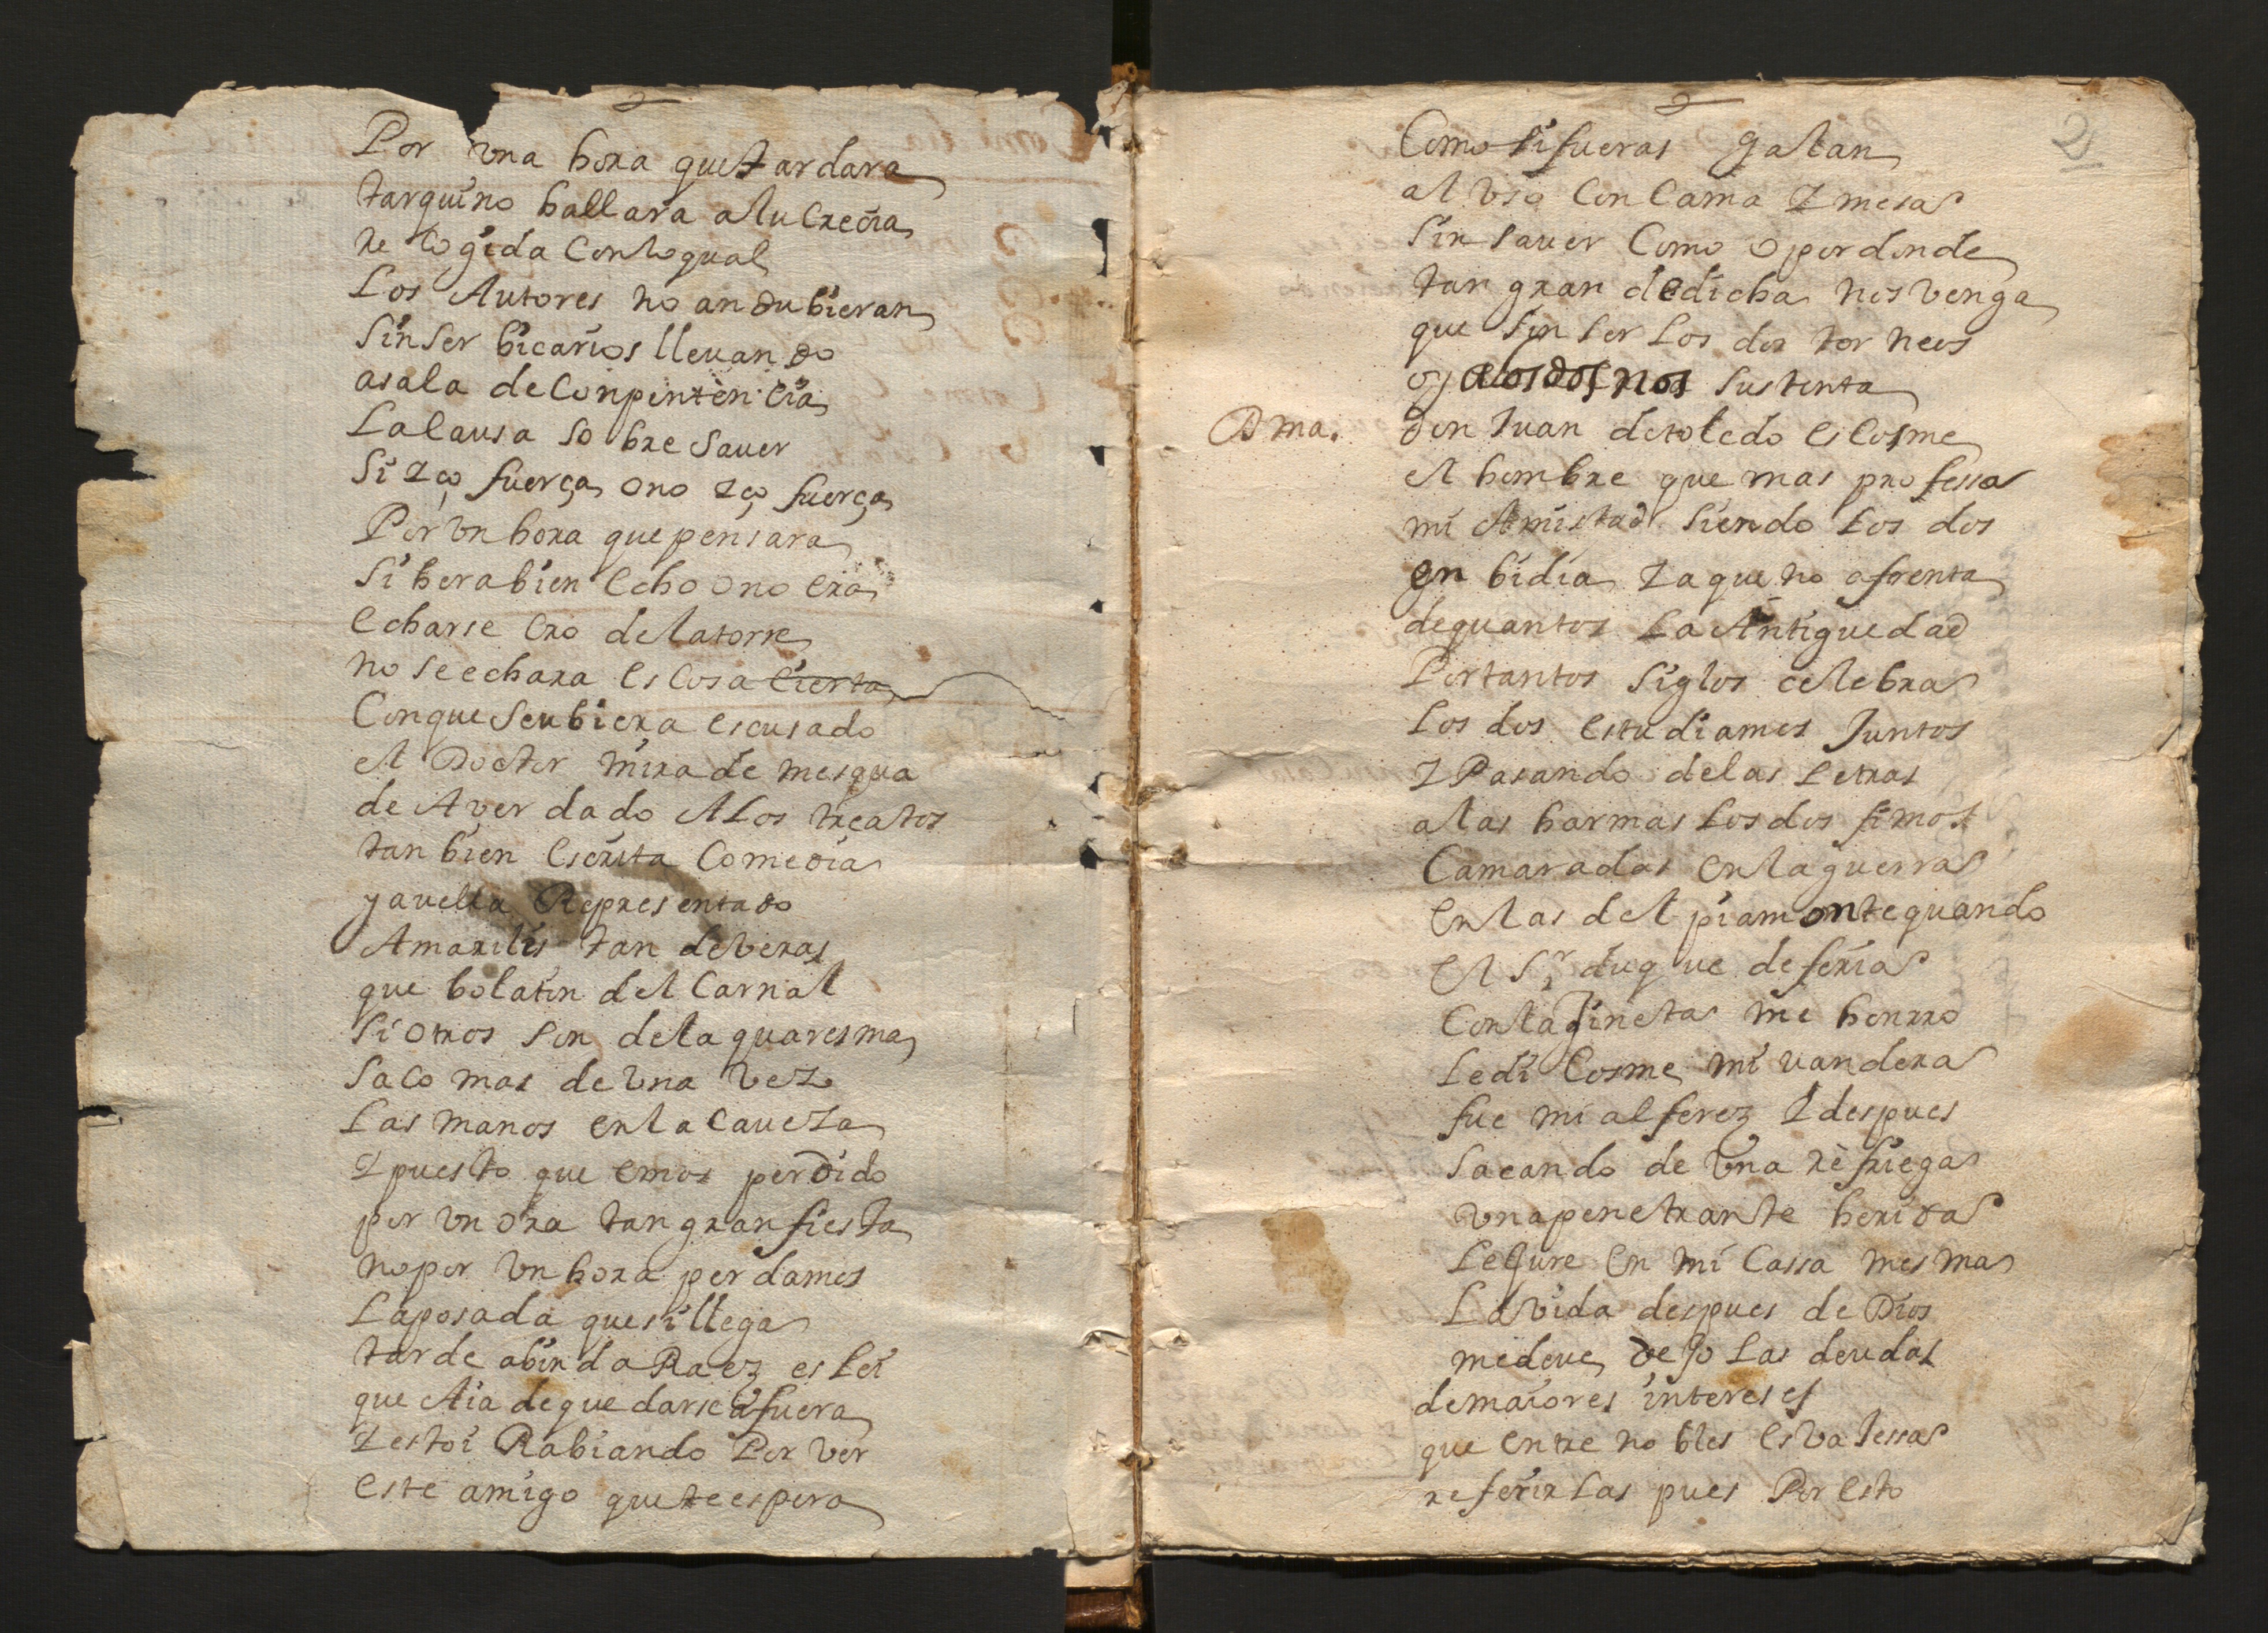 Por vna hora que tardara
tarquino hallara a lucrecia
recogida con lo qual
Los Autores no andubieran
sin ser bicarios lleuando
a sala de conpintencia
La causa sobre sauer
si iço fuerça o no iço fuerça
Por vn hora que pensara
si hera bien echo o no era
echarse ero de la torre
no se echara es cosa cierta
Con que se vbiera escusado
el Doctor mira de mesqua
de Aver dado A Los teatros
tan bien escrita comedia
y avella Representado
Amarilis tan de veras
que bolatin del carnal
si otros son de la quaresma
saco mas de vna vez
Las manos en la caueza
I puesto que emos perdido
por vn ora tan gran fiesta
no por vn hora perdamos
La posada que si llega
tarde abindaRaez es Lei
que Aia de quedarse afuera
I estoi Rabiando Por ver
este amigo que te espera
2
Como si fueras galan
al vso con cama I mesa
sin sauer como o por donde
tan gran dedicha nos venga
que sin ser Los dos torneos
oy a los dos nos sustenta
D ma. don Juan de toledo es cosme
el hombre que mas professa
mi Amistad siendo Los dos
enbidia Ia que no afrenta
de quantos La Antiguedad
Por tantos siglos celebra
Los dos estudiamos Juntos
I Pasando de las Letras
a las harmas Los dos fimos
Camaradas en la guerra
en las del piamonte quando
el Sr duque de feria
Con la Jineta me honrro
Le di Cosme mi vandera
fue mi alferez I despues
sacando de vna refriega
vna penetrante herida
Le Cure en mi Cassa mesma
La vida despues de Dios
me deve dejo Las deudas
de maiores intereses
que entre nobles es vaJessa
referirlas pues Por esto